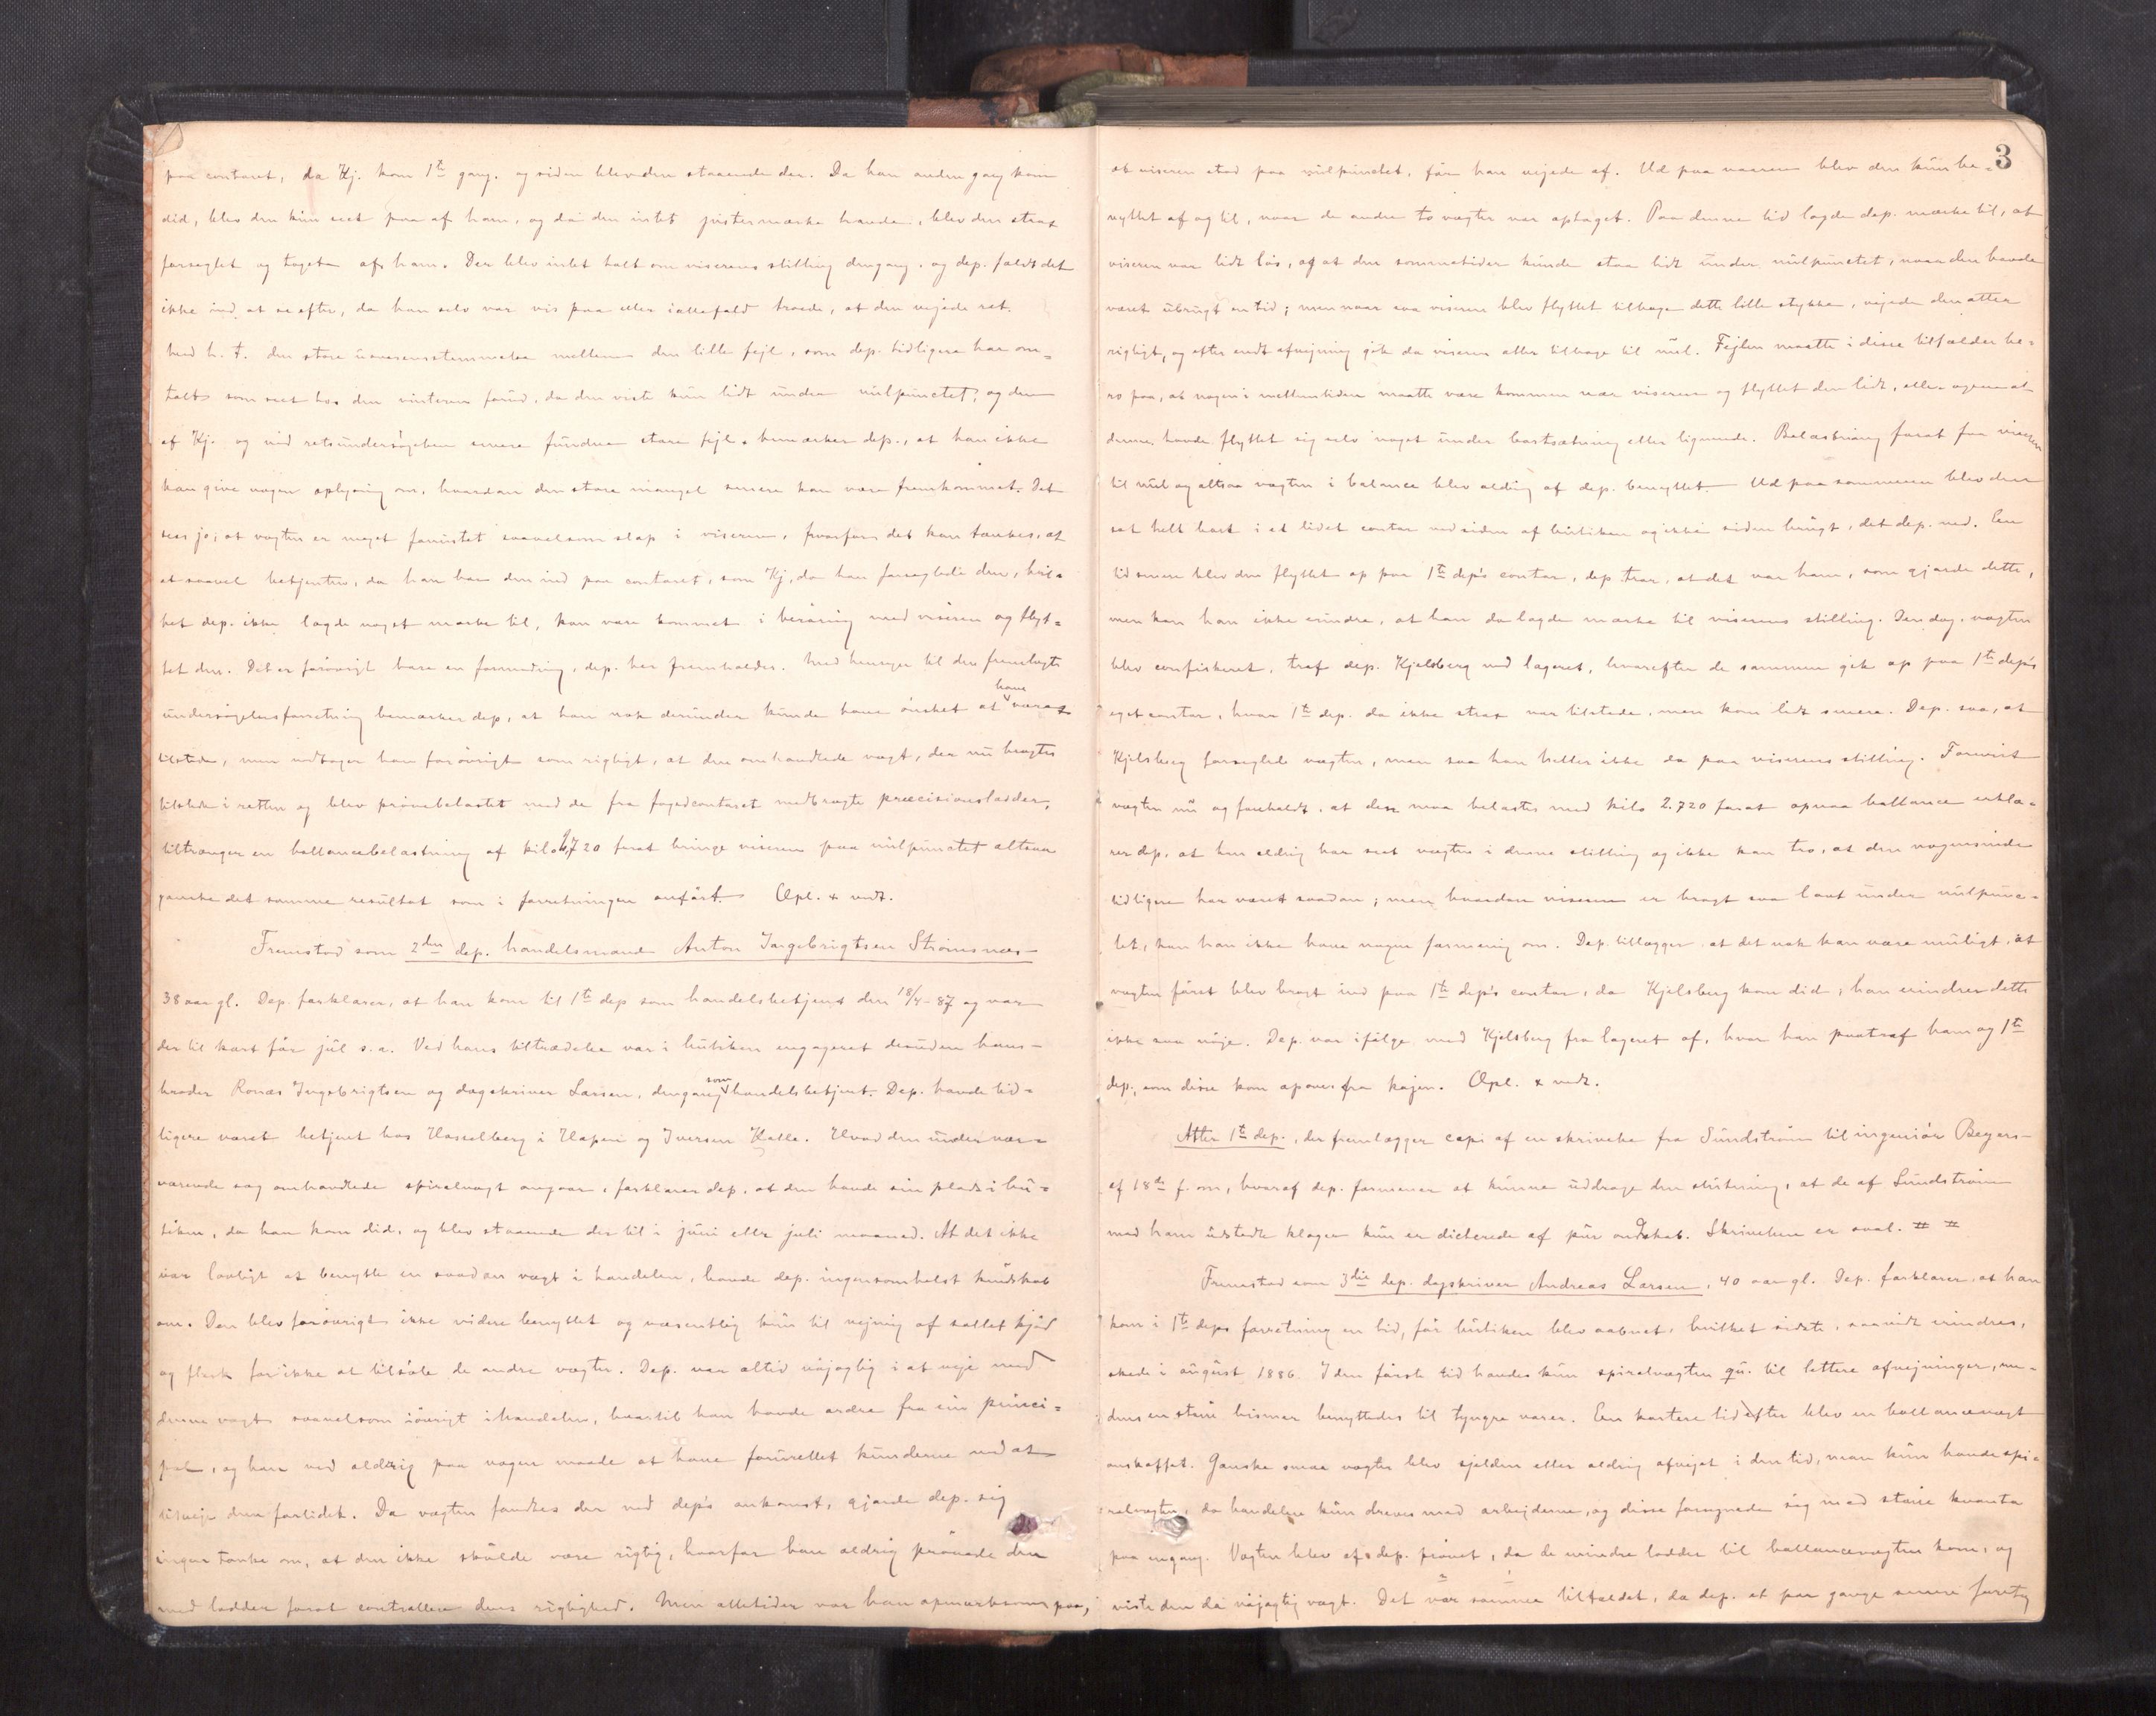 paa contoret, da Kj. kom 1ste gang. og siden blev den staaende der. Da han anden gang kom
did, blev den kun seet paa af ham, og da den intet justermærke havde, blev den strax
forseglet og taget af ham. Der blev intet talt om viserens stilling dengang, og dep. faldt det
ikke ind at se efter, da han selv var vis paa eller iallefald troede, at den vejede ret.
Med h. t. den store uoverensstemmelse mellem den lille fejl, som dep. tidligere har om=
talt som seet hos den vinteren forud, da den viste kun lidt under nulpunctet, og den
af Kj. og ved retsundersøgelsen senere fundne store fejl, bemærker dep., at han ikke
kan give nogen oplysning om, hvordan den store mangel senere kan være fremkommet. Det
sees jo, at vægten er meget forrustet saavelsom slap i viseren, hvorfor det kan tænkes, at
at saavel betjenten, da han bar den ind paa contoret, som Kj, da han forseglede den, hvil=
ket dep. ikke lagde noget mærke til, kan være kommet i berøring med viseren og flyt=
tet den. Det er forøvrigt bare en formodning, dep. her fremholder. Med hensyn til den fremlagte
undersøgelsesforretning bemærker dep, at han nok derunder kunde have ønsket at have været
tilstede, men vedtager han forøvrigt som rigtigt, at den omhandlede vægt, der nu bragtes
tilstede i retten og blev prøvebelastet med de fra fogedcontoret medbragte præcisionslodder,
tiltrænger en ballancebelastning af kilo 2,720 forat bringe viseren paa nulpunctet altsaa
ganske det samme resultat som i forretningen anført. Opl. & vedt.
Fremstod som 2den dep. handelsmand Anton Ingebrigtsen Strømsnæs
38 aar gl. Dep. forklarer, at han kom til 1ste dep som handelsbetjent den 18/4-87 og var
der til kort før jul s.a. Ved hans tiltrædelse var i butiken engageret desuden hans
broder Ronæs Ingebrigtsen og dagskriver Larsen, dengang som handelsbetjent. Dep. havde tid=
ligere været betjent hos Hasselberg i Hapen og Iversen Kalle. Hvad den under nær=
værende sag omhandlede spiralvægt angaar, forklarer dep. at den havde sin plads i bu=
tiken, da han kom did, og blev staaende der til i juni eller juli maaned. At det ikke
var lovligt at benytte en saadan vægt i handelen, havde dep. ingensomhelst kundskab
om. Den blev forøvrigt ikke videre benyttet og væsentlig kun til vejning af saltet kjød
og flesk for ikke at tilsøle de andre vægter. Dep. var altid nøjagtig i at veje med
denne vægt saavelsom iøvrigt i handelen, hvortil han havde ordre fra sin princi=
pal, og han ved aldrig paa nogen maade at have forurettet kunderne ved at
udveje dem forlidet. Da vægten fandtes der ved dep's ankomst, gjorde dep. sig
ingen tanke om, at den ikke skulde være rigtig, hvorfor han aldrig prøvede den
med lodder forat controllere dens rigtighed. Men alletider var han opmærksom paa,
3
at viseren stod paa nulpunctet, før han vejede af. Ud paa vaaren blev den kun be=
nyttet af og til, naar de andre to vægter var optaget. Paa denne tid lagde dep. mærke til, at
viseren var lidt løs, og at den sommetider kunde staa lidt under nulpunctet, naar den havde
været ubrugt en tid; men naar saa viseren blev flyttet tilbage dette lille stykke, vejede den atter
rigtigt, og efter endt afvejning gik da viseren atter tilbage til nul. Fejlen maatte i disse tilfælder be=
ro paa, at nogen i mellemtiden maatte være kommen nær viseren og flyttet den lidt, eller ogsaa at
denne havde flyttet sig selv noget under bortsætning eller lignende. Belastning forat faa viseren
til nul og altsaa vægten i balance blev aldrig af dep. benyttet. Ud paa sommeren blev den
sat helt bort i et lidet contor ved siden af butiken og ikke siden brugt, det dep. ved. En
tid senere blev den flyttet op paa 1ste dep's contor, dep. tror, at det var ham, som gjorde dette,
men kan han ikke erindre, at han da lagde mærke til viserens stilling. Den dag, vægten
blev confiskeret, traf dep. Kjelsberg ved lageret, hvorefter de sammen gik op paa 1ste dep's
eget contor, hvor 1ste dep. da ikke strax var tilstede, men kom lidt senere. Dep. saa, at
Kjelsberg forseglede vægten, men saa han heller ikke da paa viserens stilling. Forevist
vægten nu og foreholdt, at den maa belastes med kilo 2.720 forat opnaa ballance erklæ=
rer dep, at han aldrig har seet vægten i denne stilling og ikke kan tro, at den nogensinde
tidligere har været saadan; men hvordan viseren er bragt saa lavt under nulpunc=
tet, kan han ikke have nogen formening om. Dep. tillægger at det nok kan være muligt, at
vægten først blev bragt ind paa 1ste dep's contor, da Kjelsberg kom did; han erindrer dette
ikke saa nøje. Dep. var ifølge med Kjelsberg fra lageret af, hvor han paatraf ham og 1ste
dep., som disse kom opover fra kajen. Opl. & vedt.
Atter 1ste dep., der fremlægger copi af en skrivelse fra Sundstrøm til ingeniør Beyers
af 18de f. m., hvoraf dep. formener at kunne uddrage den slutning, at de af Sundstrøm
mod ham udstedte klager kun er dicterede af pur ondskab. Skrivelsen er saal. # #
Fremstod som 3die dep. dagskriver Andreas Larsen, 40 aar gl. Dep. forklarer, at han
kom i 1ste deps forretning en tid, før butiken blev aabnet, hvilket sidste, saavidt erindres,
skede i august 1886. I den første tid havdes kun spiralvægten qu. til lettere afvejninger, me=
dens en større bismer benyttedes til tyngre varer. En kortere tid efter blev en ballancevægt
anskaffet. Ganske smaa vægter blev sjelden eller aldrig afvejet i den tid, man kun havde spi=
ralvægten, da handelen kun dreves med arbejderne, og disse forsynede sig med større kvanta
paa engang. Vægten blev af dep. prøvet, da de mindre lodder til ballancevægten kom, og
viste den da nøjagtig vægt. Det var samme tilfældet, da dep. et par gange senere foretog